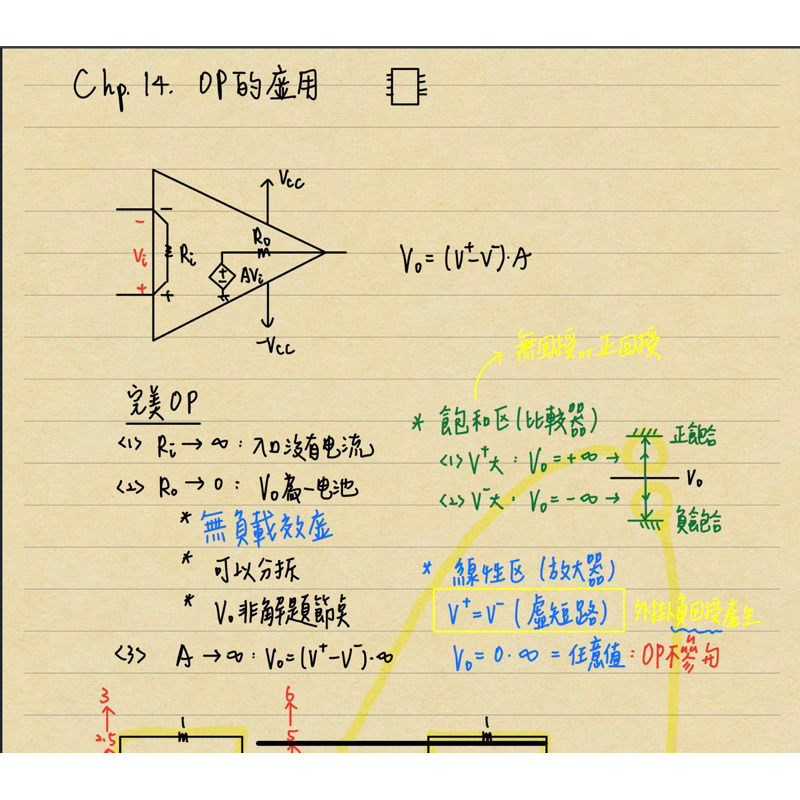 Chp. 14. OP的应用
Vcc
Ro
- Vi +
- +
Ri
AVi
-Vcc
Vo = (V⁺-V⁻)·A
無回授 or 正回授
完美OP
<1> Ri → ∞ : 入口沒有电流
<2> Ro → 0 : Vo為一电池
* 無負載效应
* 可以分拆
* Vo非解題節奌
<3> A → ∞ : Vo = (V⁺-V⁻)·∞
* 飽和区 (比較器)
<1> V⁺大 : Vo = +∞ →
<2> V⁻大 : Vo = -∞ →
正飽合
Vo
負飽合
* 線性区 (放大器)
V⁺ = V⁻ (虛短路)
外掛負回授產生
Vo = 0·∞ = 任意值 : OP不
3
2.5
1
6
5
1